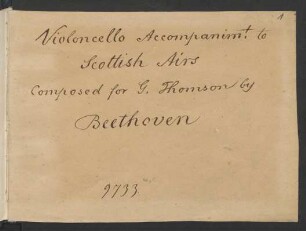 1
Violoncello Accompanimt. to
Scottish Airs
Composed for G. Thomson by
Beethoven
9733